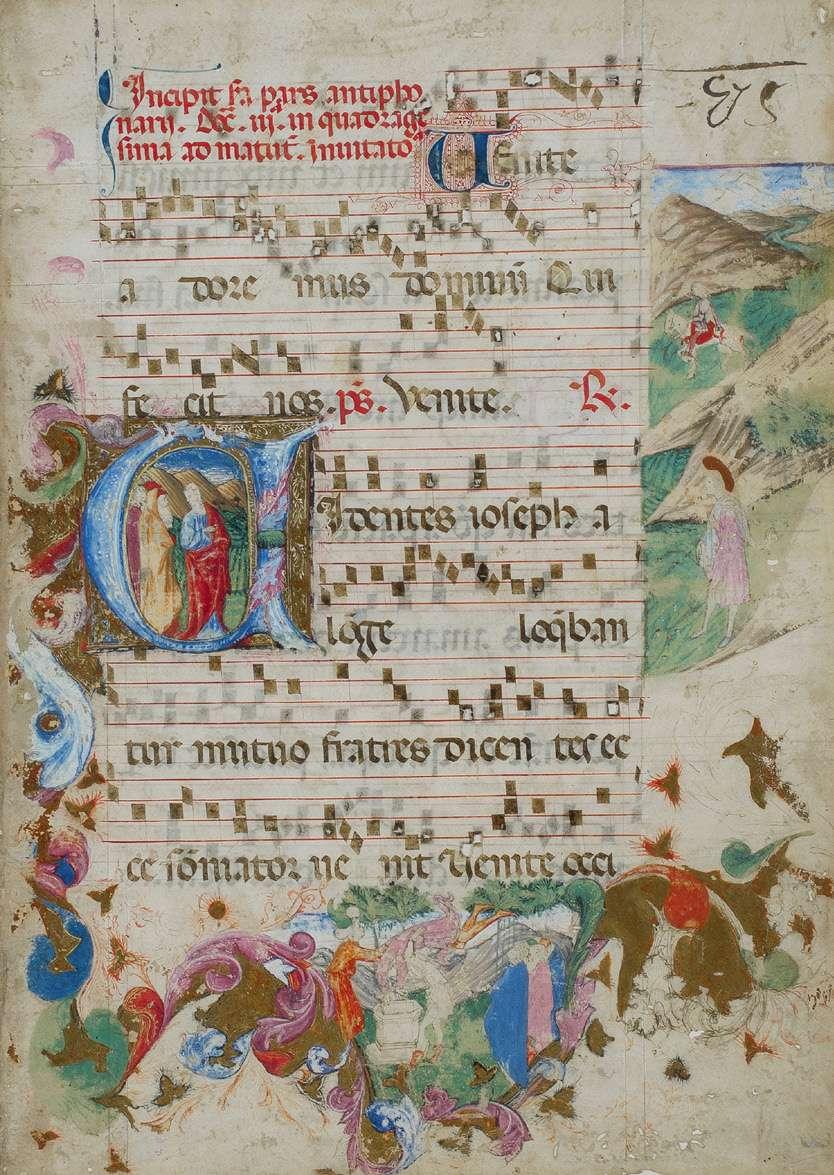 Incipit sa pars antipho
narij. Dca. iij. in quadrage
sima ad matut. Inuitato
Uenite
a dore mus dominū Qui
fe cit nos. ps. Venite. R.
UIdentes ioseph a
lo̅ge loq̅ban
tur mutuo fratres dicen tes ec
ce so̅niator ue nit Uenite occi